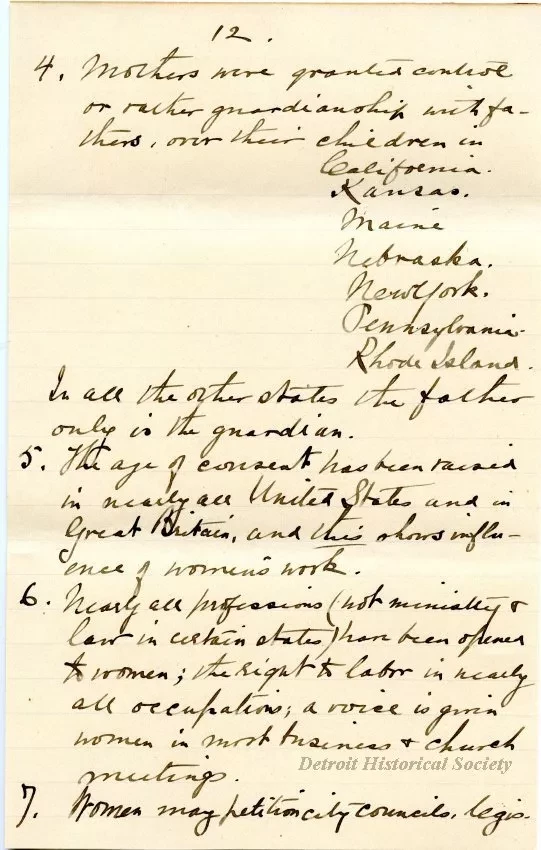 12.
4. Mothers were granted control
or rather guardianship with fa-
thers, over their children in
California.
Kansas.
Maine
Nebraska.
New York.
Pennsylvania.
Rhode Island.
In all the other states the father
only is the guardian.
5. The age of consent has been raised
in nearly all United States and in
Great Britain, and this shows influ-
ence of women's work.
6. Nearly all professions (not ministry &
law in certain states) have been opened
to women; the right to labor in nearly
all occupations; a voice is given
women in most business & church
meetings.
Detroit Historical Society
7. Women may petition city councils, legis-